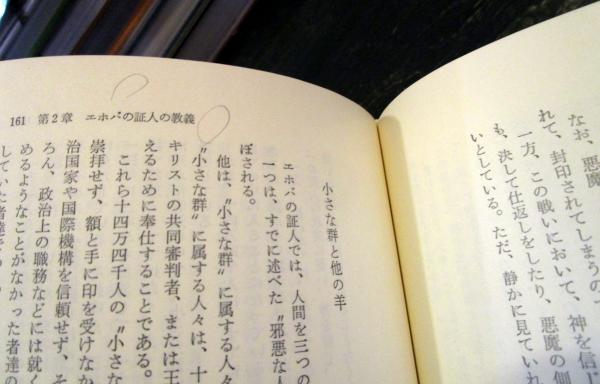 なお、悪魔
れて、封印されてしまうの
一方、この戦いにおいて、神を信じ
も、決して仕返しをしたり、悪魔の側
いとしている。ただ、静かに見ていれ
161 第2章 エホバの証人の教義
小さな群と他の羊
エホバの証人では、人間を三つの
一つは、すでに述べた〝邪悪な人
ぼされる。
他は、〝小さな群〟に属する人々
〝小さな群〟に属する人々は、十
キリストの共同審判者、または王
えるために奉仕することである。
これら十四万四千人の〝小さな
崇拝せず、額と手に印を受けなか
治国家や国際機構を信頼せず、そ
ろん、政治上の職務などには就く
めるようなことがなかった者達の
していた者達で